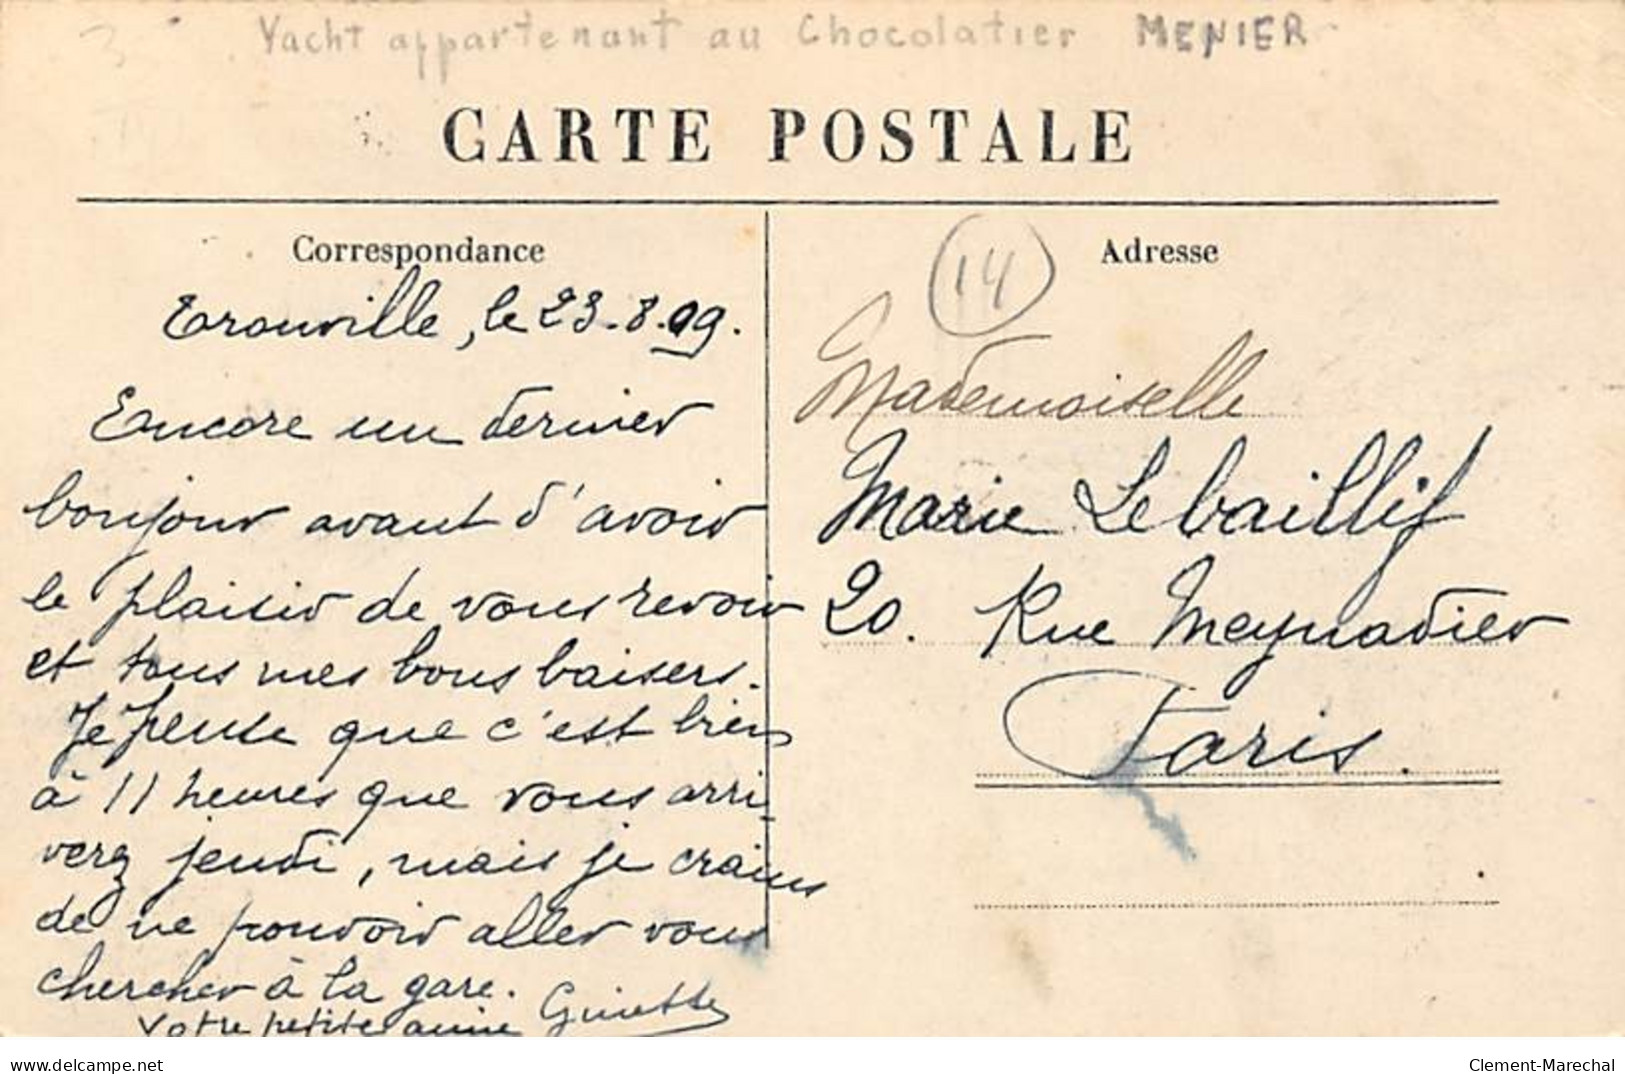 Yacht appartenant au Chocolatier MENIER
CARTE POSTALE
Correspondance
Trouville, le 23.8.09.
Encore un dernier
bonjour avant d'avoir
le plaisir de vous revoir
et tous mes bons baisers.
Je pense que c'est bien
à 11 heures que vous arri-
verez jeudi, mais je crains
de ne pouvoir aller vous
chercher à la gare.
Votre petite amie Ginette
Adresse
14
Mademoiselle
Marie Lebaillif
20. Rue Meynadier
Paris.
delcampe.net
Clement-Marechal